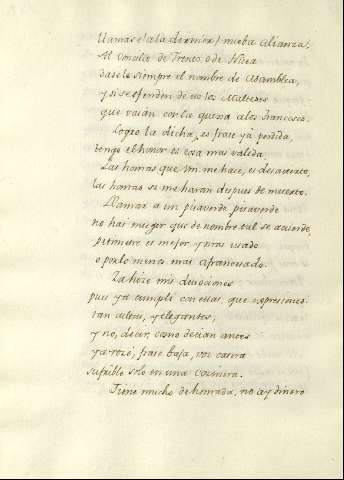 llamas è la dexmira nueba alianza.
Al Concilio de Trento, o de Nicea
dasele siempre el nombre de Asamblea,
y si se ofenden de eso los Malteses
que vaian con la quexa a los franceses.
Logro la dicha, es frase ya perdida,
tengo el honor es cosa mas valida
Las honras que Vm. me hace, es desacierto,
las honras si me haran despues de muerto.
Llamar a un pisaverde pisaverde
no hai muger que de nombre tal se acuerde,
petimetre es mejor y mas usado
o por lo menos mas afrancesado.
Ya hize mis devociones
pues ya cumpli con ellas, que expresiones
tan cultas, y elegantes,
y no, decir, como decian antes
ya rezé, frase baja, voz casera
sufrible solo en una cozinera.
Tiene mucho de honrada, no ay dinero